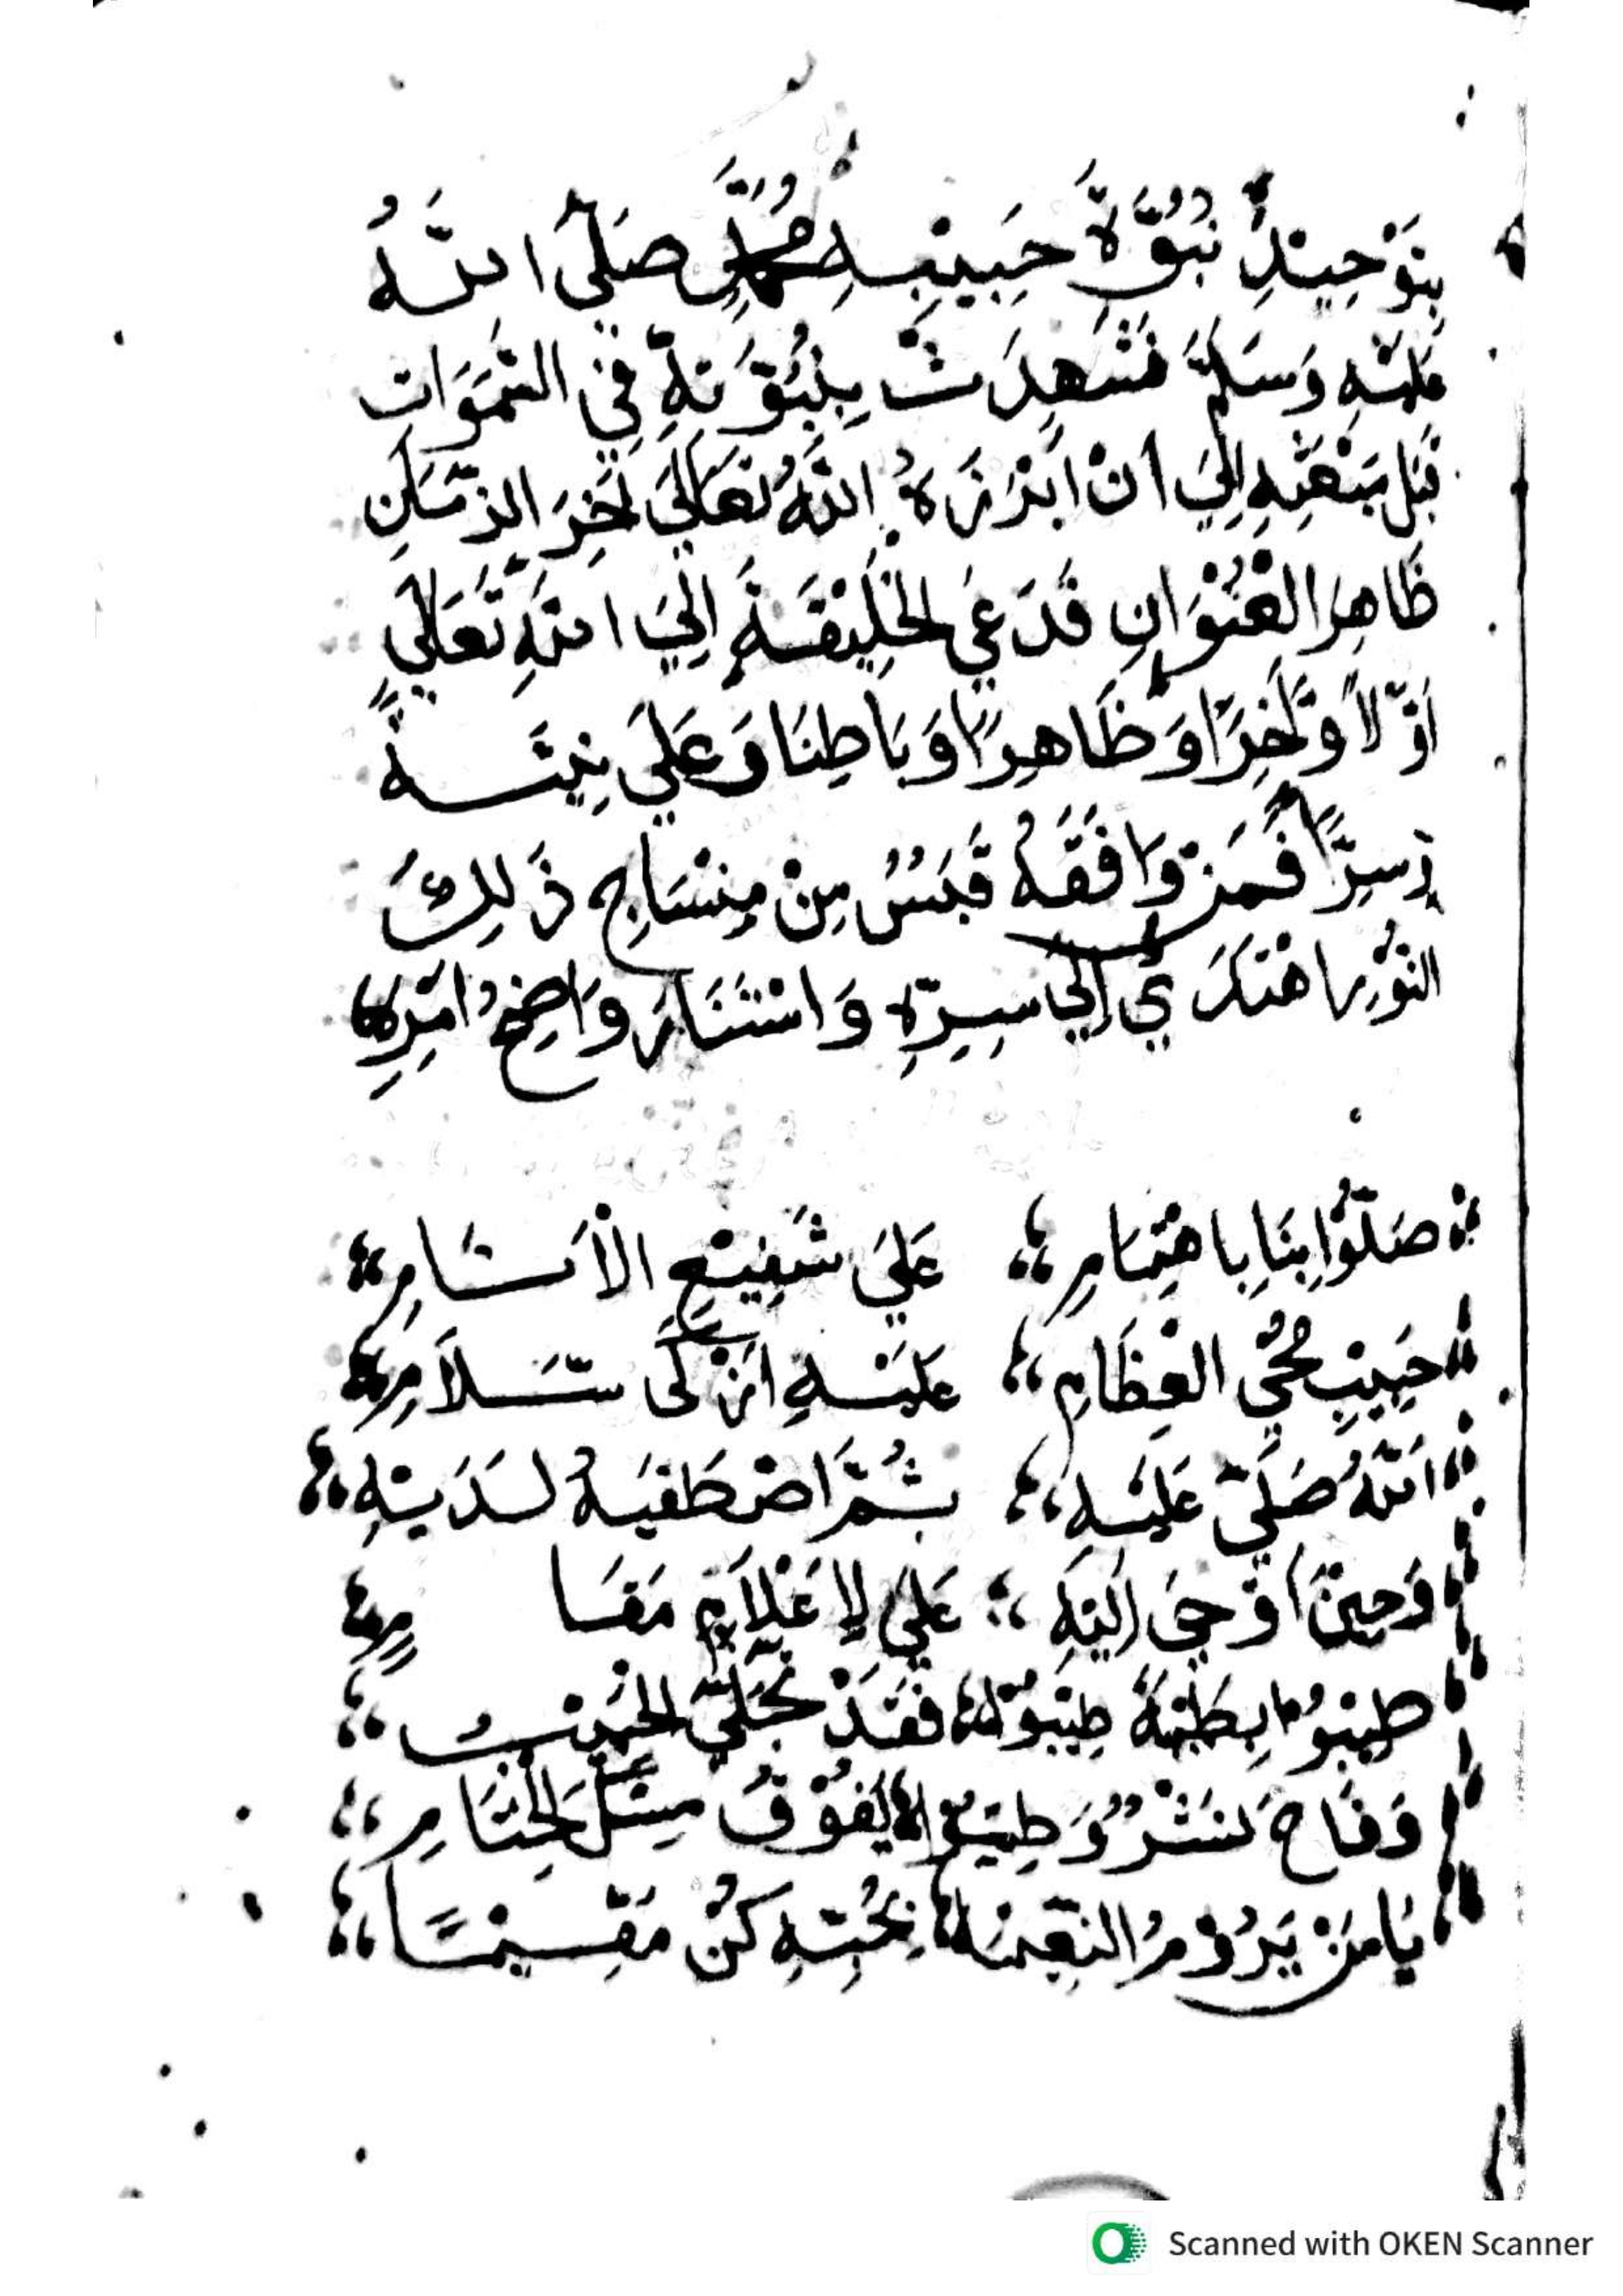 بِتَوْحِيْدِ نُبُوَّةِ حَبِيْبِهِ مُحَمَّدٍ صَلَّى اللَّهُ
عَلَيْهِ وَسَلَّمَ فَشَهِدَتْ بِنُبُوَّتِهِ فِي السَّمَوَاتِ
قَبْلَ بَعْثِهِ إِلَى أَنْ اَبْرَزَهُ اللَّهُ تَعَالَى لَخِرَ الزَّمَانِ
ظَاهِرَ الْعُنْوَانِ فَدَعَى الْخَلِيْقَةِ إِلَى اللَّهِ تَعَالَى
أَوَّلًا وَّلَخِرًا وَظَاهِرًا وَبَاطِنَا وَعَلَى نِيَّةً
وَسِرًّا فَمَنْ وَافَقَهُ قَبَسٌ مِنْ ذَلِكَ
النُّوْرِ اهْتَدَى إِلَى سِرِّهِ وَاسْتَنَارَ وَاضِحُ اَمْرِهِ
صَلُّوْا بِنَا بِاهْتِمَامِ ،، عَلَى شَفِيْعِ الْأَنَامِ ،،
حَبِيْبِ مُحْيِ الْعِظَامِ ،، عَلَيْهِ اَزْكَى سَّلَامِ ،،
اَللَّهُ صَلَّى عَلَيْهِ ،، ثُمَّ اصْطَفَيهُ لَدَيْهِ ،،
وَحِيْنَ اَوْحَى إِلَيْهِ ،، عَلَى لِاعْلَامِ مَقَامِ ،،
طِيْبُوْا بِطَيْبَةَ طِيْبُوْا ،، فَقَدْ تَجَلَّى الْحَبِيْبُ ،،
وَفَاحَ نَشْرٌ وَطِيْبٌ ،، يَفُوْقُ مِسْكَ الْخِتَامِ ،،
يَا مَنْ يَرُوْمُ النَّعِيْمَا ،، بِحُبِّهِ كُنْ مُقِيْمًا ،،
Scanned with OKEN Scanner